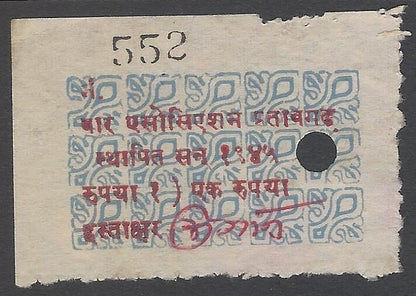 552
नं.
बार एसोसिएशन प्तावगढ़
स्थापित सन १९४५
रुपया १) एक रुपया
हस्ताक्षर